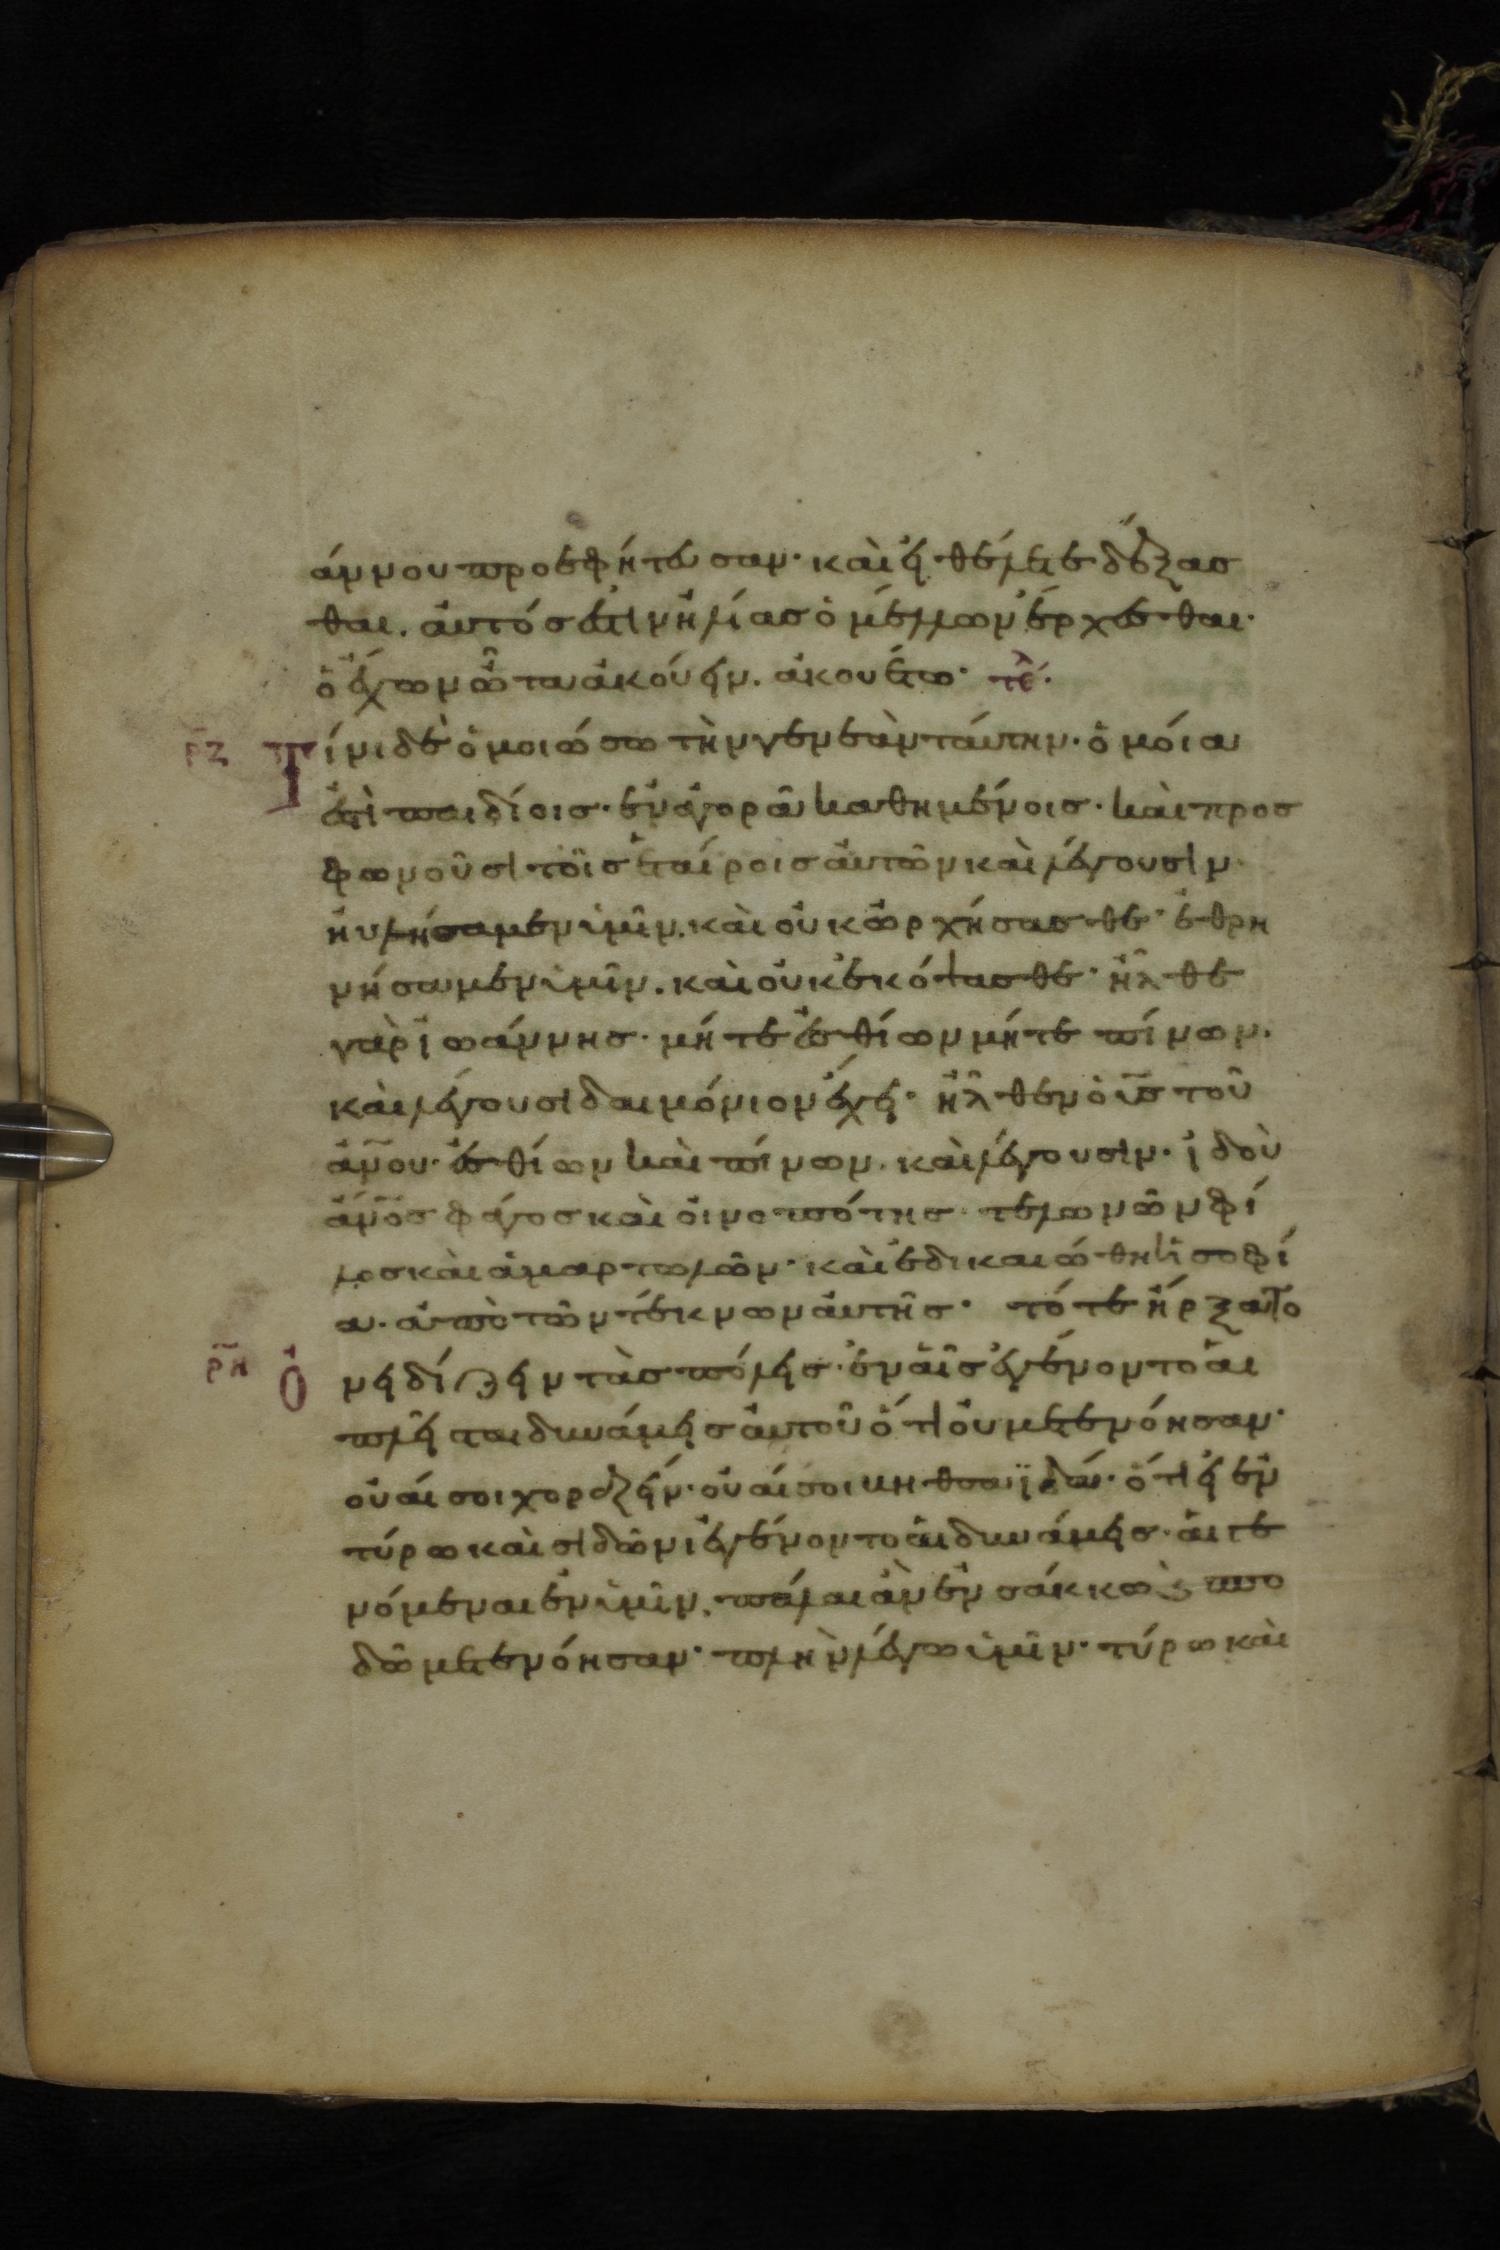 άννου προεφήτευσαν· καὶ εἰ θέλετε δέξασ
θαι. αὐτός ἐστιν ἠλίας ὁ μέλλων ἔρχεσθαι·
ὁ ἔχων ὦτα ἀκούειν. ἀκουέτω· τελ
ρζ Τίνι δὲ ὁμοιώσω τὴν γενεὰν ταύτην· ὁμοία
ἐστὶ παιδίοις· ἐν ἀγορᾶ καθημένοις· καὶ προσ
φωνοῦσι τοῖς ἑταίροις αὐτῶν καὶ λέγουσιν·
ηὐλήσαμεν ὑμῖν. καὶ οὐκ ὠρχήσασθε· ἐθρη
νήσαμεν ὑμῖν. καὶ οὐκ ἐκόψασθε· ἦλθε
γὰρ ἰωάννης· μήτε ἐσθίων μήτε πίνων.
καὶ λέγουσι δαιμόνιον ἔχει· ἦλθεν ὁ υἱς τοῦ
ἀνου· ἐσθίων καὶ πίνων. καὶ λέγουσιν· ἰδοὺ
ἀνος φάγος καὶ οἰνοπότης· τελωνῶν φί
λος καὶ ἁμαρτωλῶν· καὶ ἐδικαιώθη ἡ σοφί
α· ἀπὸ τῶν τέκνων αὐτῆς· τότε ἤρξατο
ρη Ὀνειδίζειν τὰς πόλεις· ἐν αἷς ἐγένοντο αἱ
πλεῖσται δυνάμεις αὐτοῦ ὅτι οὐ μετενόησαν·
οὐαί σοι χοραζείν· οὐαί σοι βηθσαϊδάν· ὅτι εἰ ἐν
τύρω καὶ σιδῶνι ἐγένοντο αἱ δυνάμεις· αἱ γε
νόμεναι ἐν ὑμῖν. πάλαι ἂν ἐν σάκκω καὶ σπο
δῶ μετενόησαν· πλὴν λέγω ὑμῖν· τύρω καὶ